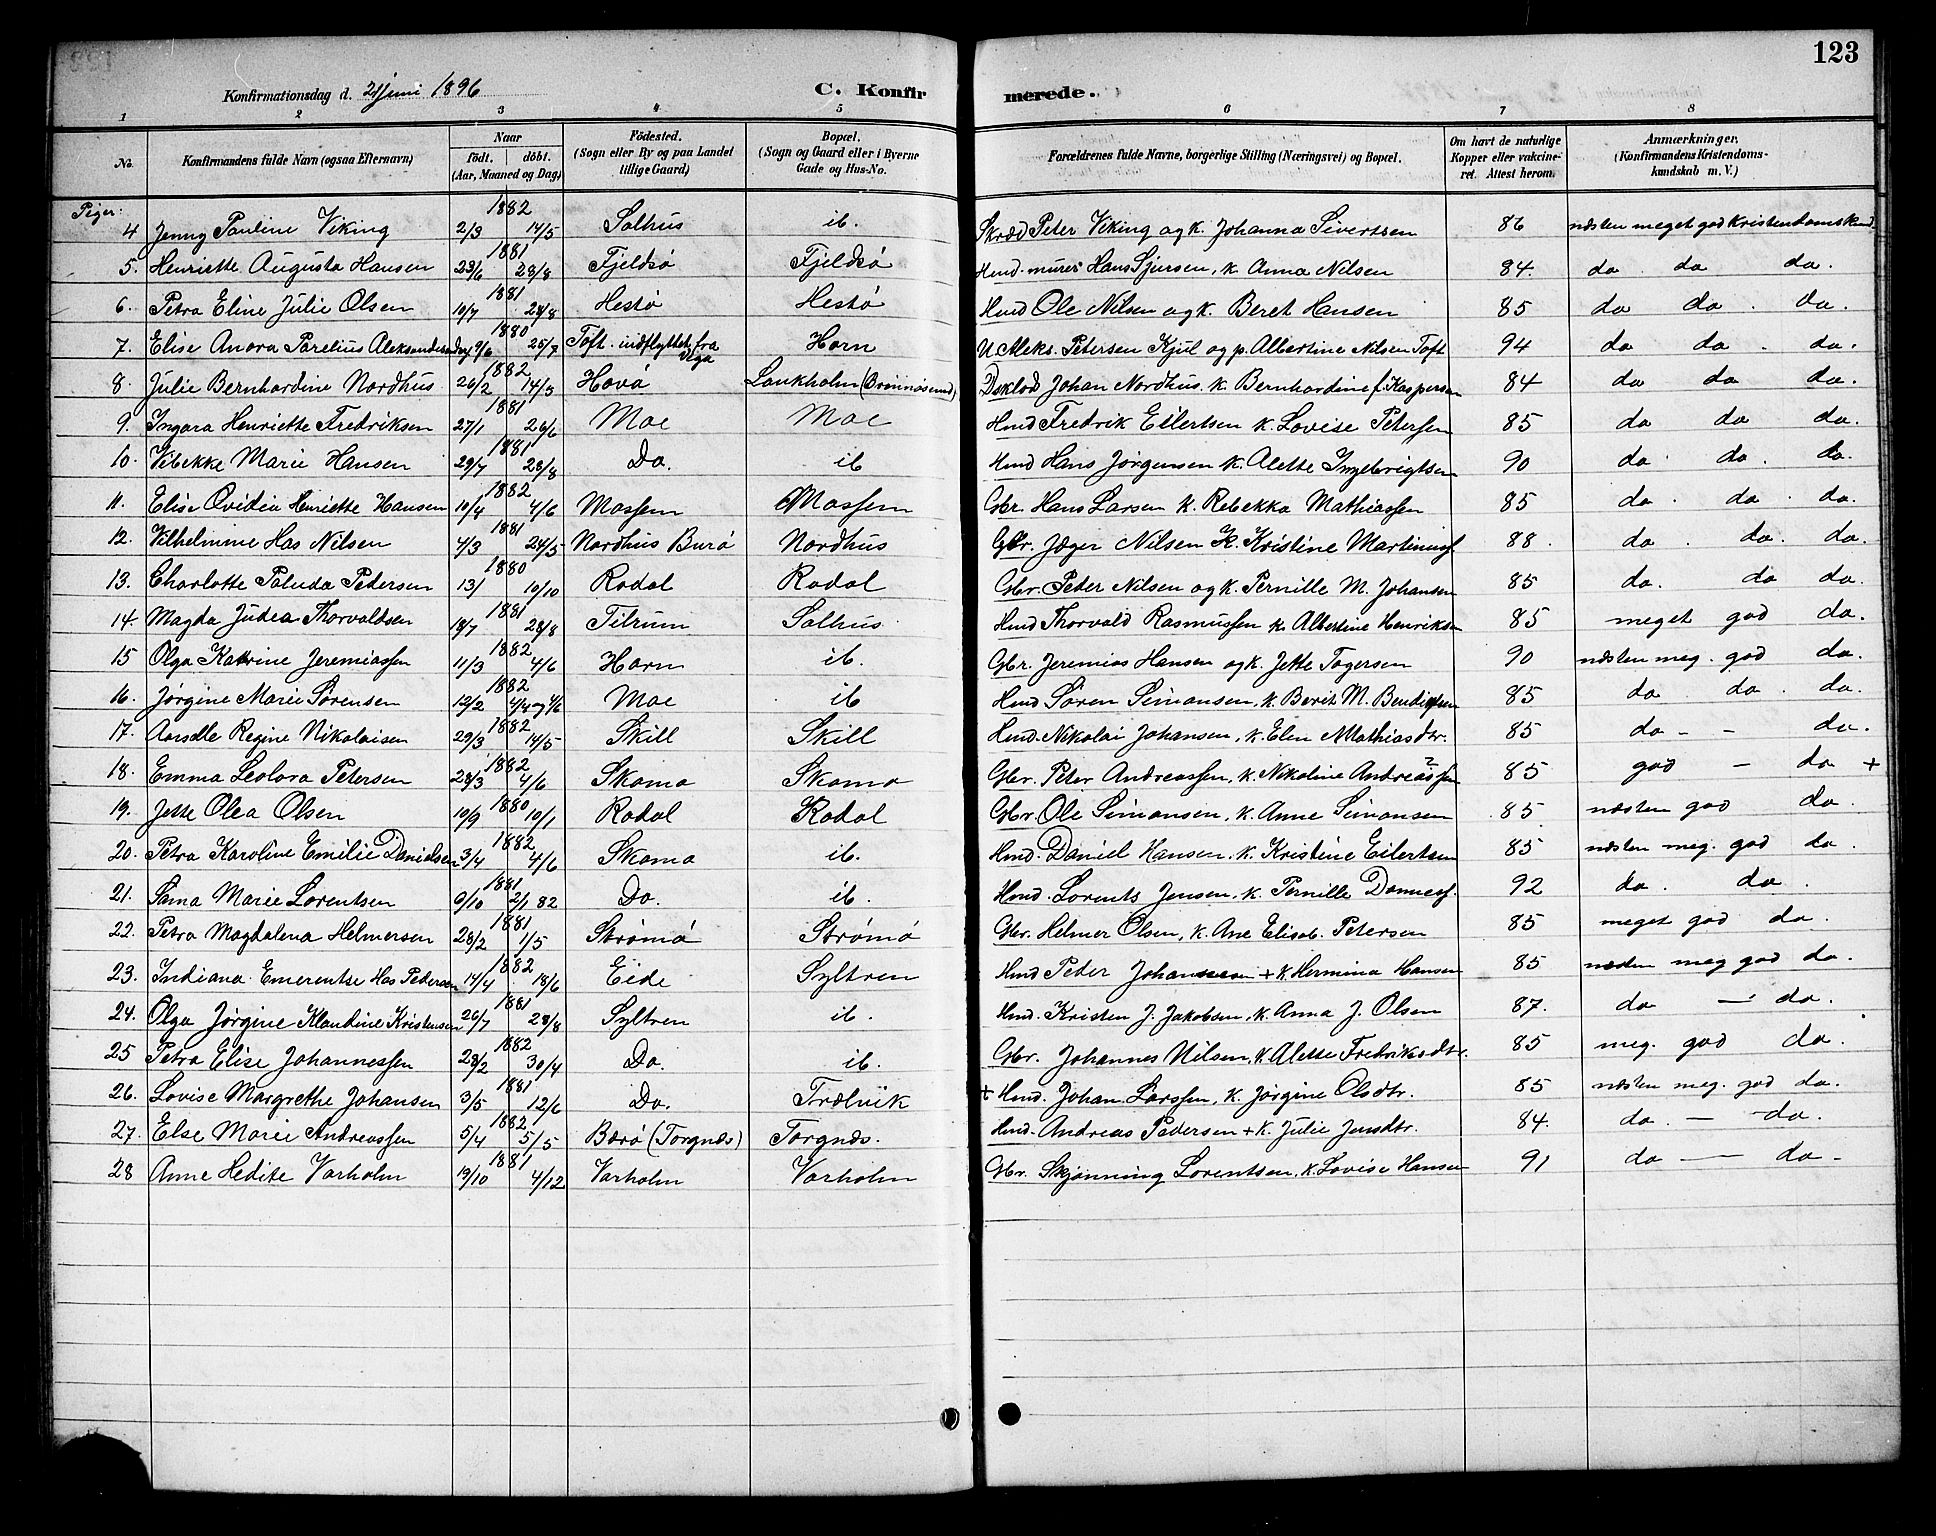 123
Konfirmationsdag d. 21 juni 1896 C. Konfirmerede.
1 2 3 4 5 6 7 8
No. Konfirmandens fulde Navn (ogsaa Efternavn) Naar födt. döbt. (Aar, Maaned og Dag) Födested. (Sogn eller By og paa Landet tillige Gaard) Bopæl. (Sogn og Gaard eller i Byerne Gade og Hus-No. Forældrenes fulde Navne, borgerlige Stilling (Næringsvei) og Bopæl. Om havt de naturlige Kopper eller vakcineret. Attest herom. Anmærkninger. (Konfirmandens Kristendomskundskab m. V.)
Piger:
4 Jenny Pauline Viking 1882 2/3 14/5 Salhus ib. Skræd Peter Viking og k. Johanna Sivertsen 86 næsten meget god Kristendomskund
5. Henriette Augusta Hansen 1881 23/6 28/8 Fjeldsø Fjeldsø Hmd. murer Hans Sjursen, k. Anna Nilsen 84. do do do.
6. Petra Eline Julie Olsen 1881 10/7 28/8 Hestø Hestø Hmd Ole Nilsen og k. Beret Hansen 85 do do. do.
7. Elise Anora Parelius Aleksandersen 1880 9/6 25/7 Toft. indflyttet fra Vega Horn U. Aleks. Petersen Kjul og p. Albertine Nilsen Toft 94 do do - do.
8. Julie Bernhardine Nordhus 1882 26/2 14/3 Havø Lankholm (Brønnøsund) Johan Nordhus. k. Bernhardine f. Kaspersen 84 do do do.
9. Ingara Henriette Fredriksen 1881 27/1 26/6 Moe Moe Hmd Fredrik Eilertsen k. Lovise Petersen 85 do do do.
10. Vibekke Marie Hansen 1881 29/7 28/8 Do. ib Hmd Hans Jørgensen k. Alette Ingebrigtsen 90 do do. do.
11. Elise Ovidia Henriette Hansen 1882 10/4 4/6 Mossem Mossem Gbr. Hans Larsen k. Rebekka Mathiassen 85 do. do. do.
12. Vilhelmine Has Nilsen 1881 4/3 24/5 Nordhus Burø Nordhus Gbr. Jæger Nilsen K. Kristine Martinusf. 88. do. do. do.
13. Charlotte Paluda Pedersen 1880 13/ 10/10 Rodal Rodal Gbr. Peder Nilsen og k. Pernille M. Johansen 85 do. do do.
14. Magda Judea Thorvaldsen 1881 18/7 28/8 Tilrum Salhus Hmd Thorvald Rasmussen k. Albertine Henriksen 85 meget god do.
15 Olga Katrine Jeremiassen 1882 11/3 4/6 Horn ib. Gbr. Jeremias Hansen og k. Jette Togersen 90 næsten meg. god do.
16. Jørgine Marie Sørensen 1882 12/2 4/4 og 4/6 Moe ib Hmd Søren Simonsen, k. Berit M. Bendiksen 85 do. do. do.
17. Regine Nikolaisen 1882 29/3 14/5 Skill Skill Hmd. Nikolai Johansen, k. Elen Mathiasdtr. 85 do - - do.
18. Emma Leolora Petersen 1882 23/3 4/6 Skomo Skomo Gbr. Peter Andreassen, k. Nikoline Andreassen 85 god - do +
19. Jette Olea Olsen 1880 10/9 10/1 Rodal Rodal Gbr. Ole Simonsen, k. Anne Simonsen 85. næsten god do.
20. Petra Karoline Emilie Danielsen 1882 3/4 4/6 Skomo ib. Hmd. Daniel Hansen. k. Kristine Eilertsen 85 næsten meg. god do.
21. Sama Marie Lorentsen 1881 9/10 2/1 82 Do. ib. Hmd. Lorents Jensen, k. Pernille Donnesf. 92 do. do.
22. Petra Magdalena Helmersen 1881 28/2 1/5 Strømø Strømø Gbr. Helmer Olsen, k. Ane Elisab. Petersen 85 meget god do.
23. Indiana Emerentse Has Pedersen 1882 14/4 18/6 Eide Syltren Hmd Peder Johansen + k. Hermina Hansen 85 næsten meg god do.
24. Olga Jørgine Klaudine Kristensen 1881 26/7 28/8 Syltren ib. Hmd. Kristen J. Jakobsen, k. Anna J. Olsen 87. do - do.
25 Petra Elise Johannessen 1882 23/2 30/4 Do. ib. Gbr. Johannes Nilsen, k. Alette Fredriksdtr. 85 meg. god do.
26. Lovise Margrethe Johansen 1881 3/5 12/6 Do. Trælvik + Hmd. Johan Larssen, k. Jørgine Olsdtr. 85 næsten meg. god do.
27. Else Marie Andreassen 1882 5/4 5/5 Bærø (Torgnes) Torgnes. Hmd. Andreas Pedersen + k. Julie Jensdtr. 84. do. - do.
28 Anne Hedite Varholm 1881 19/10 4/12 Varholm Varholm Gbr. Skjønning Lorentsen, k. Lovise Hansen 91 do - do -